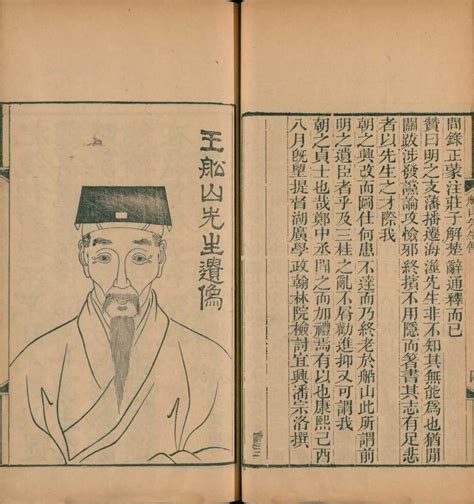 聞錄正蒙注莊子解楚辭通釋而已
贊曰明之支藩播遷海澨先生非不知其無能為也猶間
關跋涉發讜論攻憸邪終擯不用隱而著書其志有足悲
者以先生之才際我
朝之興改而圖仕何患不達而乃終老於船山此所謂前
明之遺臣者乎及三桂之亂不屑勸進抑又可謂我
朝之貞士也哉鄭中丞聞之而加禮焉有以也康熙己酉
八月旣望提督湖廣學政翰林院檢討宜興潘宗洛撰
王船山先生遺像